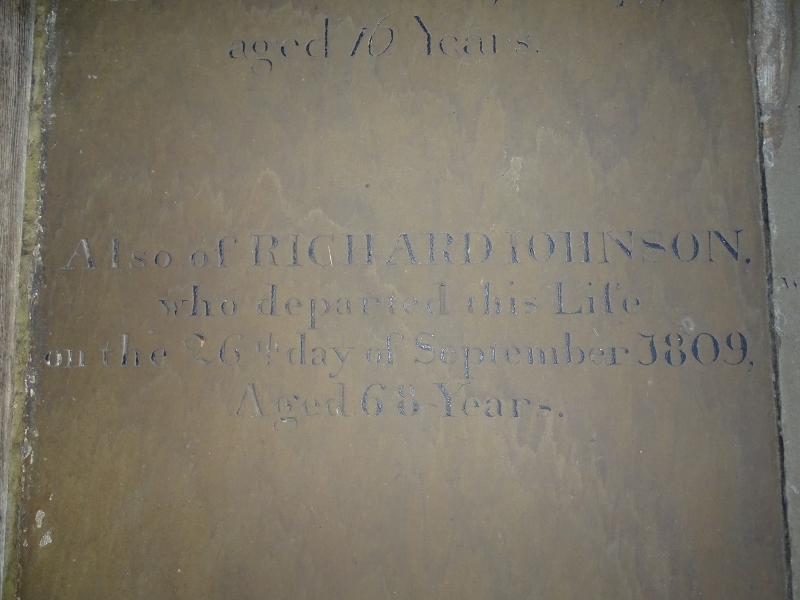 aged 70 Years.
Also of RICHARD JOHNSON,
who departed this Life
on the 26th day of September 1809,
Aged 68 Years.